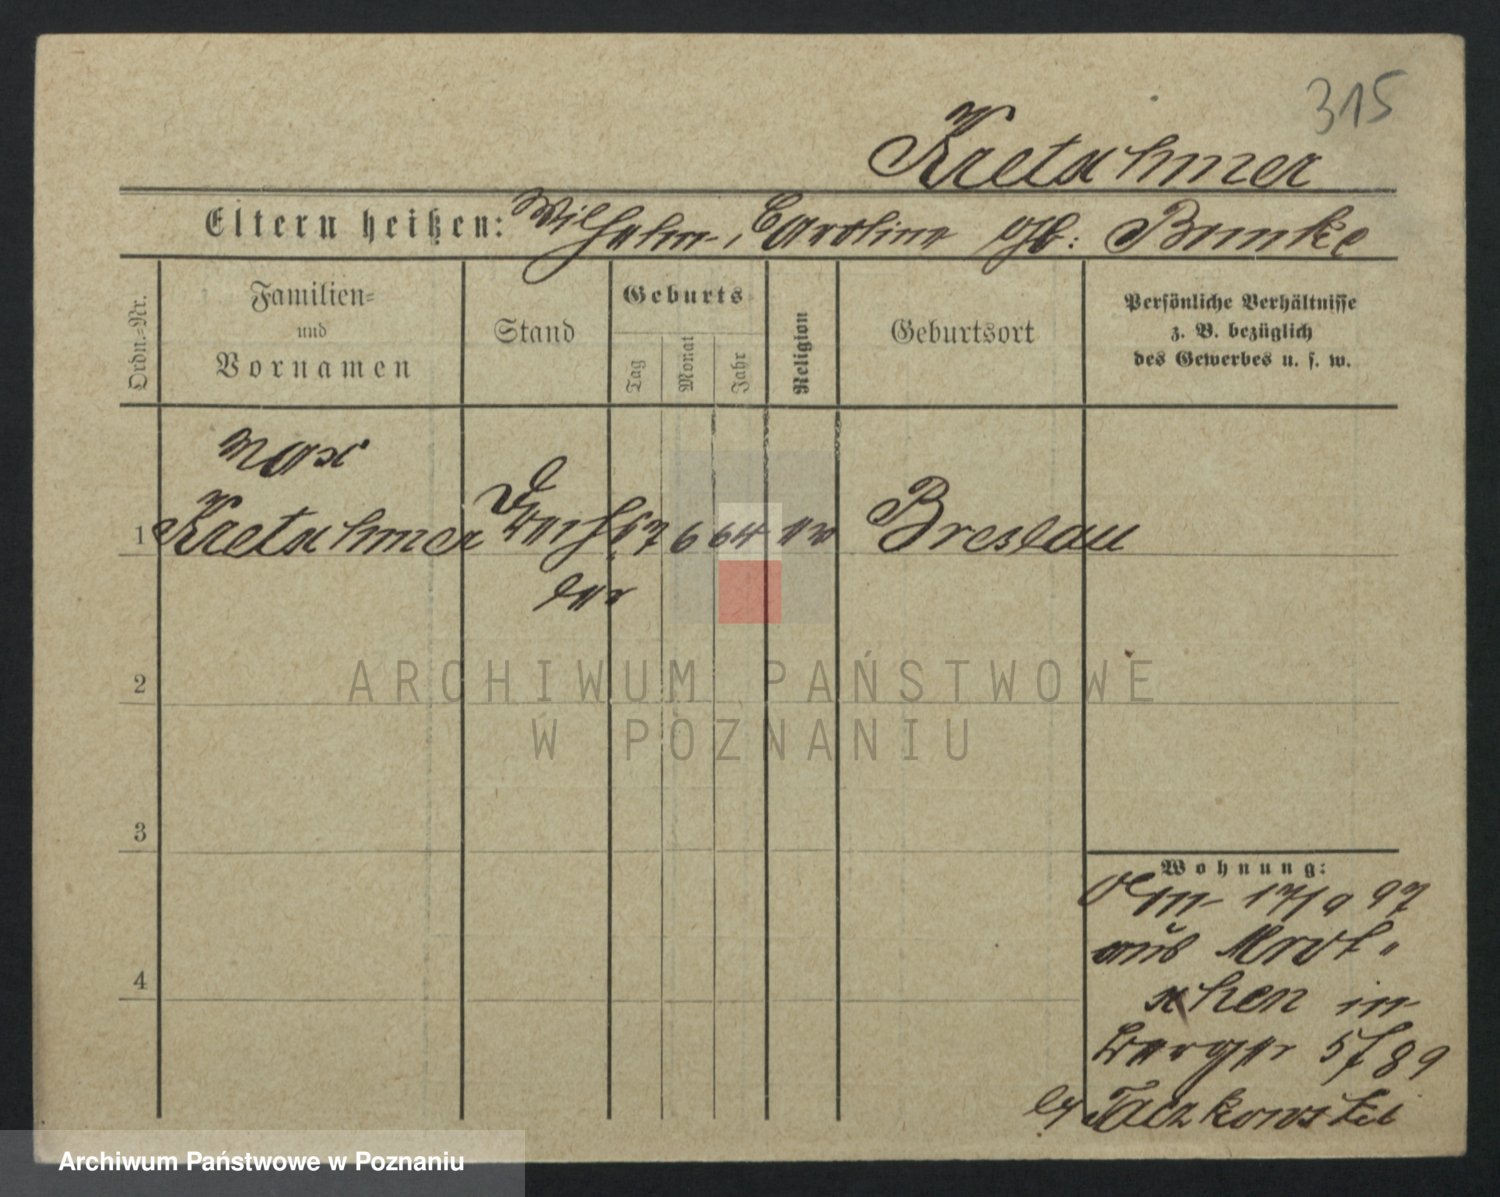 315
Kretschmer
Eltern heißen: Wilhelm, Caroline geb: Bumke
Ordn.-Nr.
Familien-
und
Vornamen
Stand
Geburts
Tag
Monat
Jahr
Religion
Geburtsort
Persönliche Verhältnisse
z. B. bezüglich
des Gewerbes u. s. w.
Max
1 Kretschmer 6 64 ev Breslau
2
ARCHIWUM PAŃSTWOWE
W POZNANIU
3
4
Wohnung:
17/9 97
aus Mrot-
schen in
Berger 5 f 89
Taczkowski
Archiwum Państwowe w Poznaniu